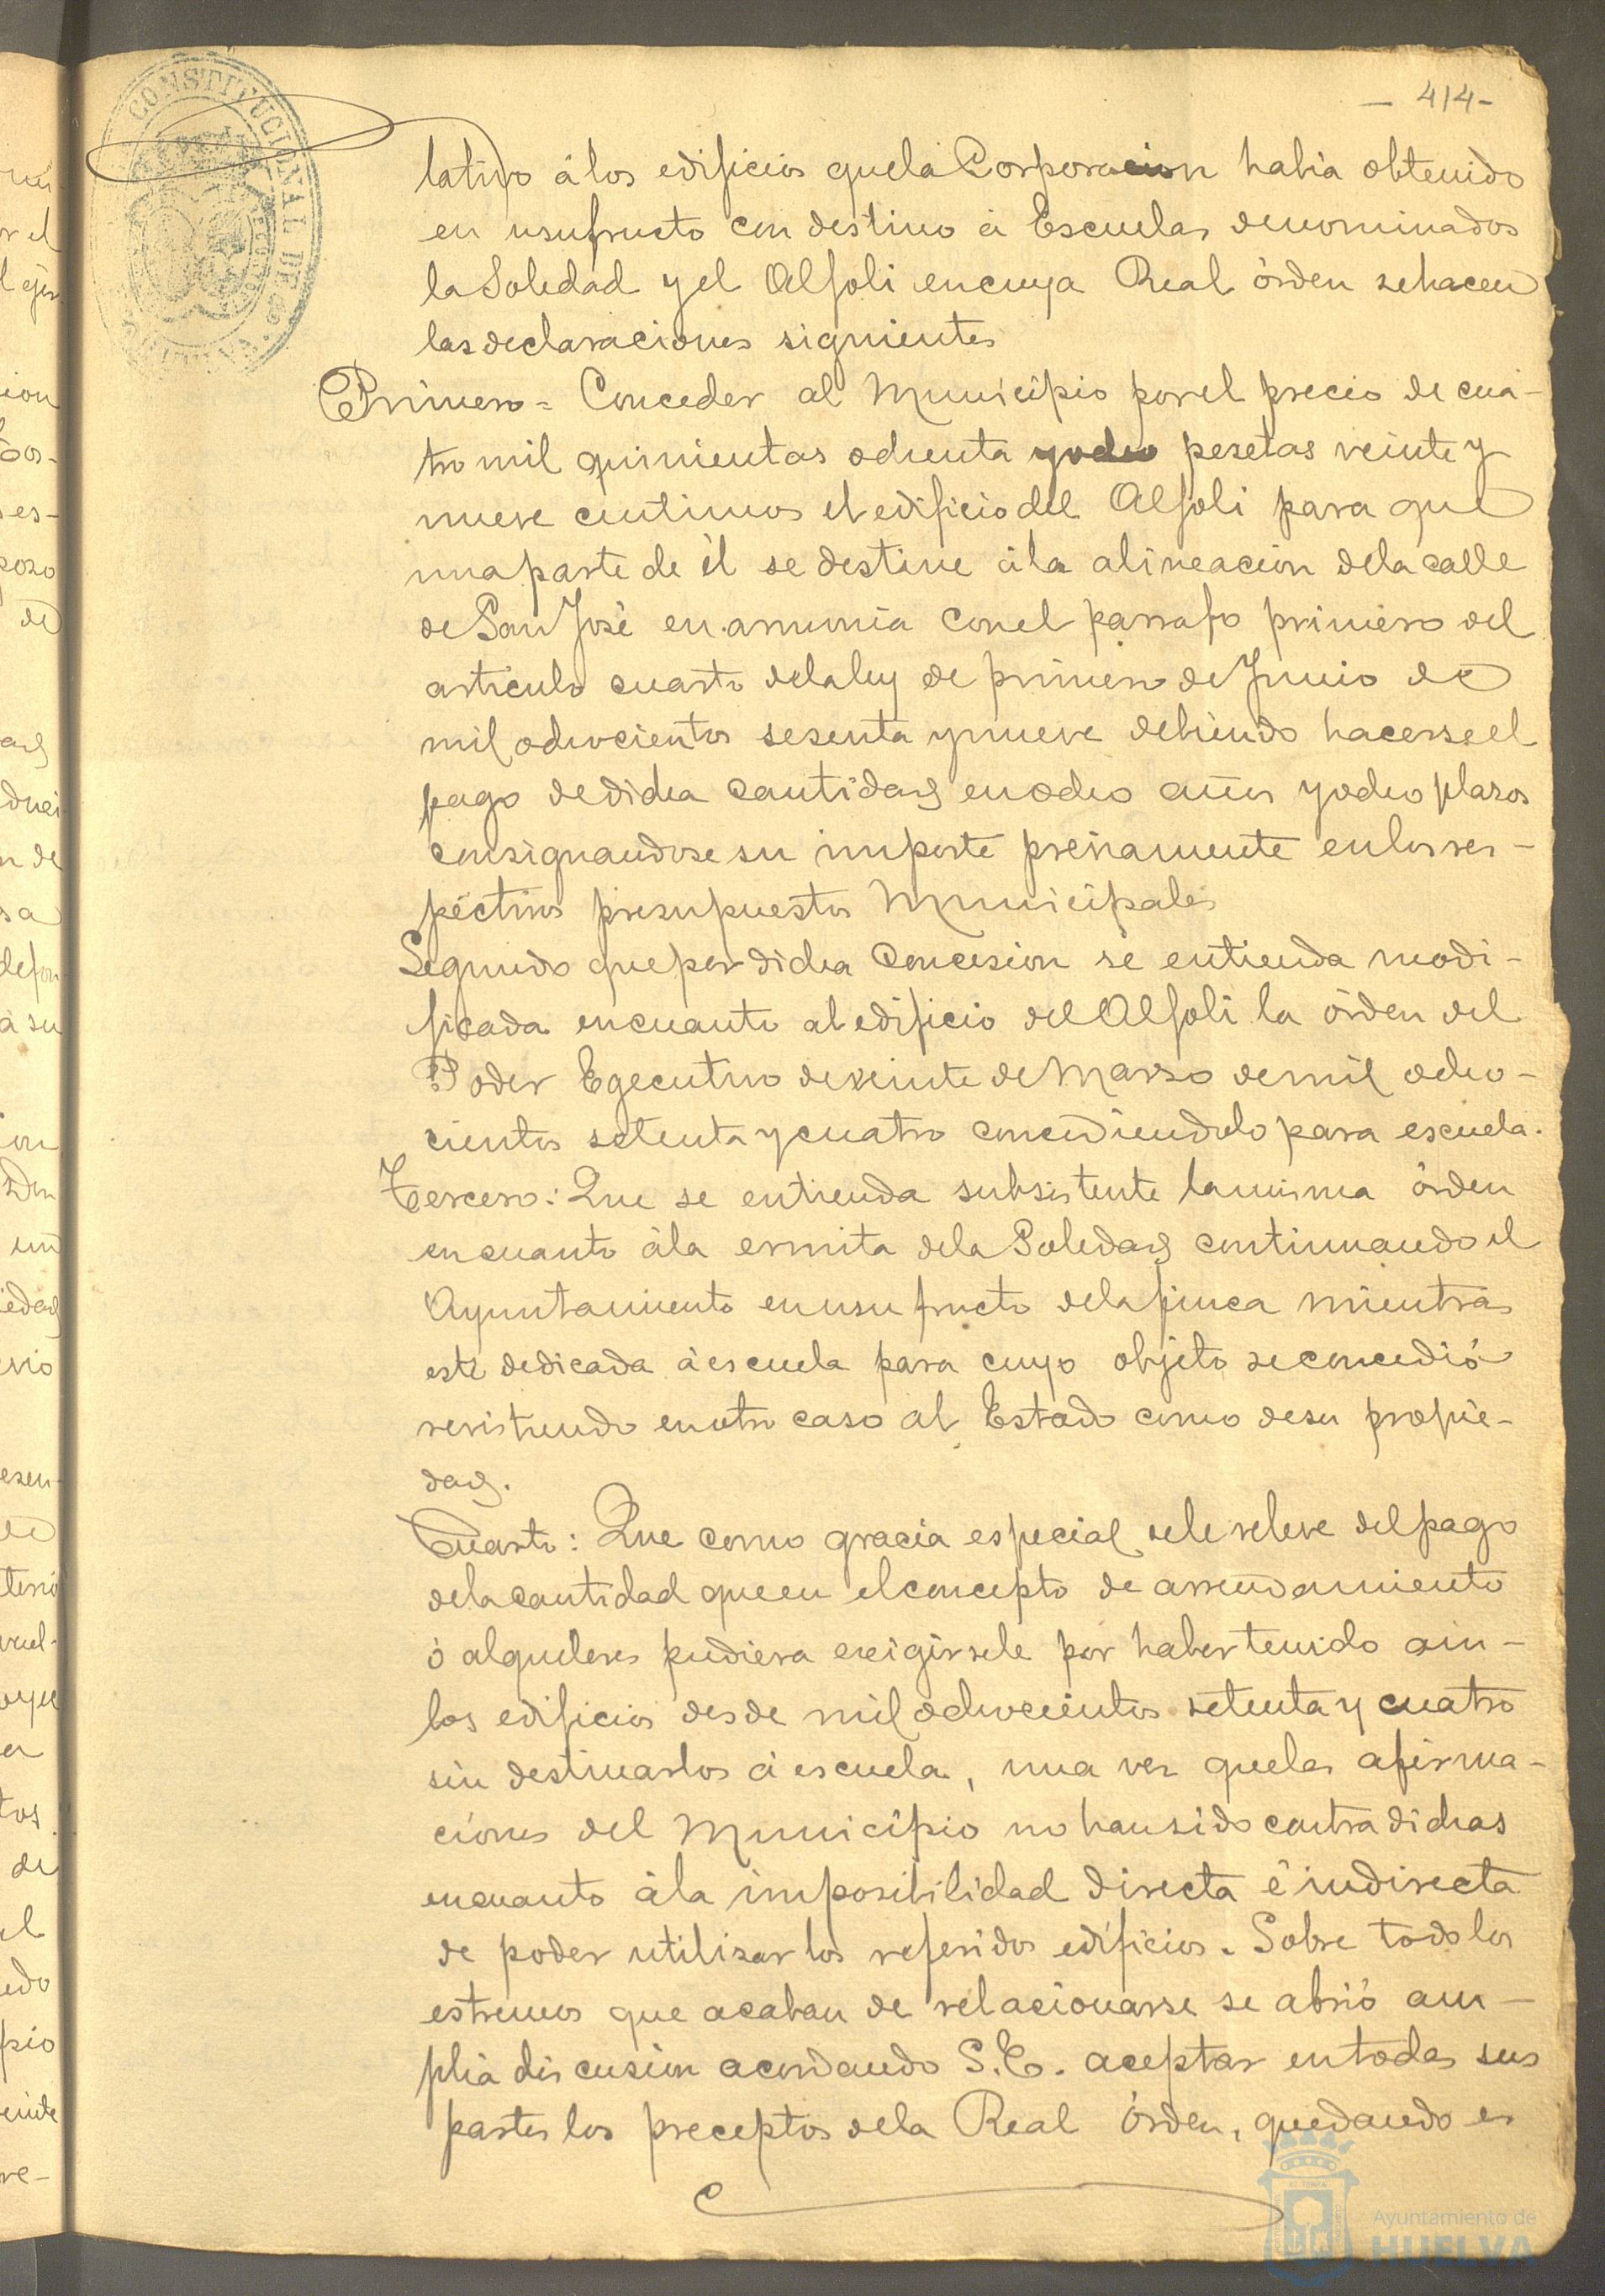 — 414 -
lativo á los edificios que la Corporacion habia obtenido
en usufructo con destino á Escuelas denominados
la Soledad y el Alfoli en cuya Real órden se hacen
las declaraciones siguientes
Primero = Conceder al Municipio por el precio de cua-
tro mil quinientas ochenta y ocho pesetas veinte y
nueve centimos el edificio del Alfoli para que
una parte de él se destine á la alineacion de la calle
de San José en armonia con el parrafo primero del
articulo cuarto de la ley de primero de Junio de
mil ochocientos sesenta y nueve debiendo hacerse el
pago de dicha cantidad en ocho años y ocho plazos
consignandose su importe préviamente en los res-
pectivos presupuestos Municipales
Segundo que por dicha Concesion se entienda modi-
ficada en cuanto al edificio del Alfoli la órden del
Poder Egecutivo de veinte de Marzo de mil ocho-
cientos setenta y cuatro concediendolo para escuela.
Tercero: Que se entienda subsistente la misma órden
en cuanto á la ermita de la Soledad continuando el
Ayuntamiento en usufructo de la finca mientras
esté dedicada á escuela para cuyo objeto se concedió
revistiendo en otro caso al Estado como de su propie-
dad.
Cuarto: Que como gracia especial se le releve del pago
de la cantidad que en el concepto de arrendamiento
ó alquileres pudiera exigirsele por haber tenido am-
bos edificios desde mil ochocientos setenta y cuatro
sin destinarlos á escuela, una vez que las afirma-
ciones del Municipio no han sido contradichas
en cuanto á la imposibilidad directa é indirecta
de poder utilizar los referidos edificios. Sobre todo los
estremos que acaban de relacionarse se abrió am-
plia discusion acordando S.E. aceptar en todas sus
partes los preceptos de la Real Órden, quedando es
CONSTITUCIONAL DE
Ayuntamiento de
HUELVA